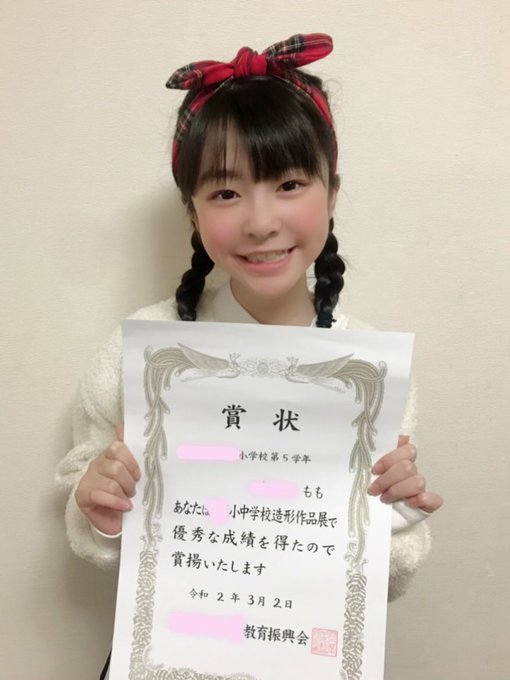 賞状
小学校第5学年
もも
あなたは小中学校造形作品展で
優秀な成績を得たので
賞揚いたします
令和2年3月2日
教育振興会